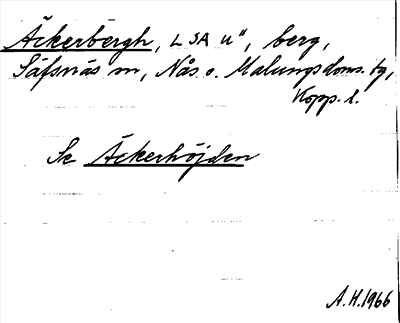 Äckerbergh, LSA U", berg,
Säfsnäs sn, Nås o. Malungs doms. tg,
Kopp. l.
Se Äckerhöjden
A.H. 1966